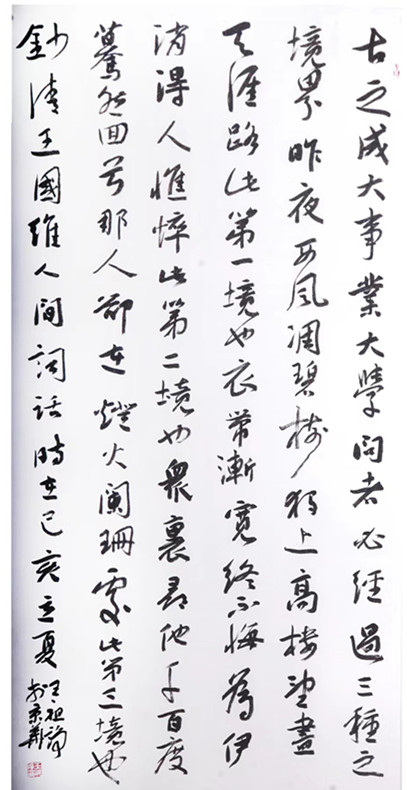 古之成大事業大學問者必經過三種之
境界昨夜西風凋碧樹獨上高樓望盡
天涯路此第一境也衣帶漸寬終不悔為伊
消得人憔悴此第二境也衆裏尋他千百度
驀然回首那人卻在燈火闌珊處此第三境也
鈔清王國維人間詞話時在己亥立夏
王祖
於京華